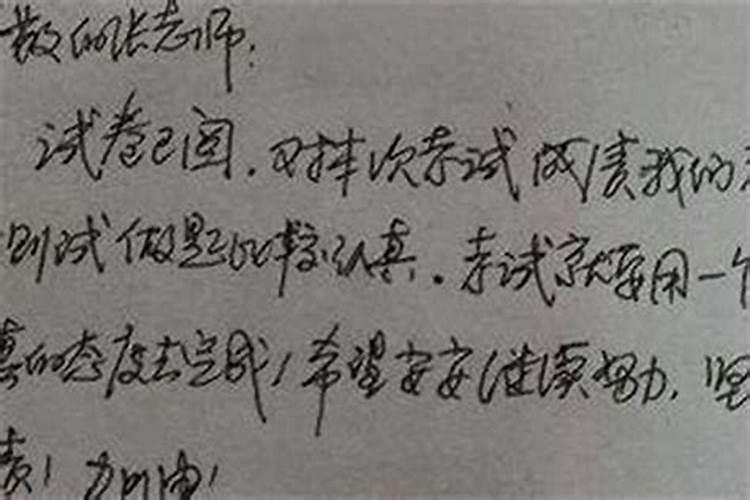 敬的张老师:
试卷已阅.对本次考试成绩我的
测试做题比较认真.考试就要用一个
真的态度去完成,希望安安继续努力.坚
责!加油!